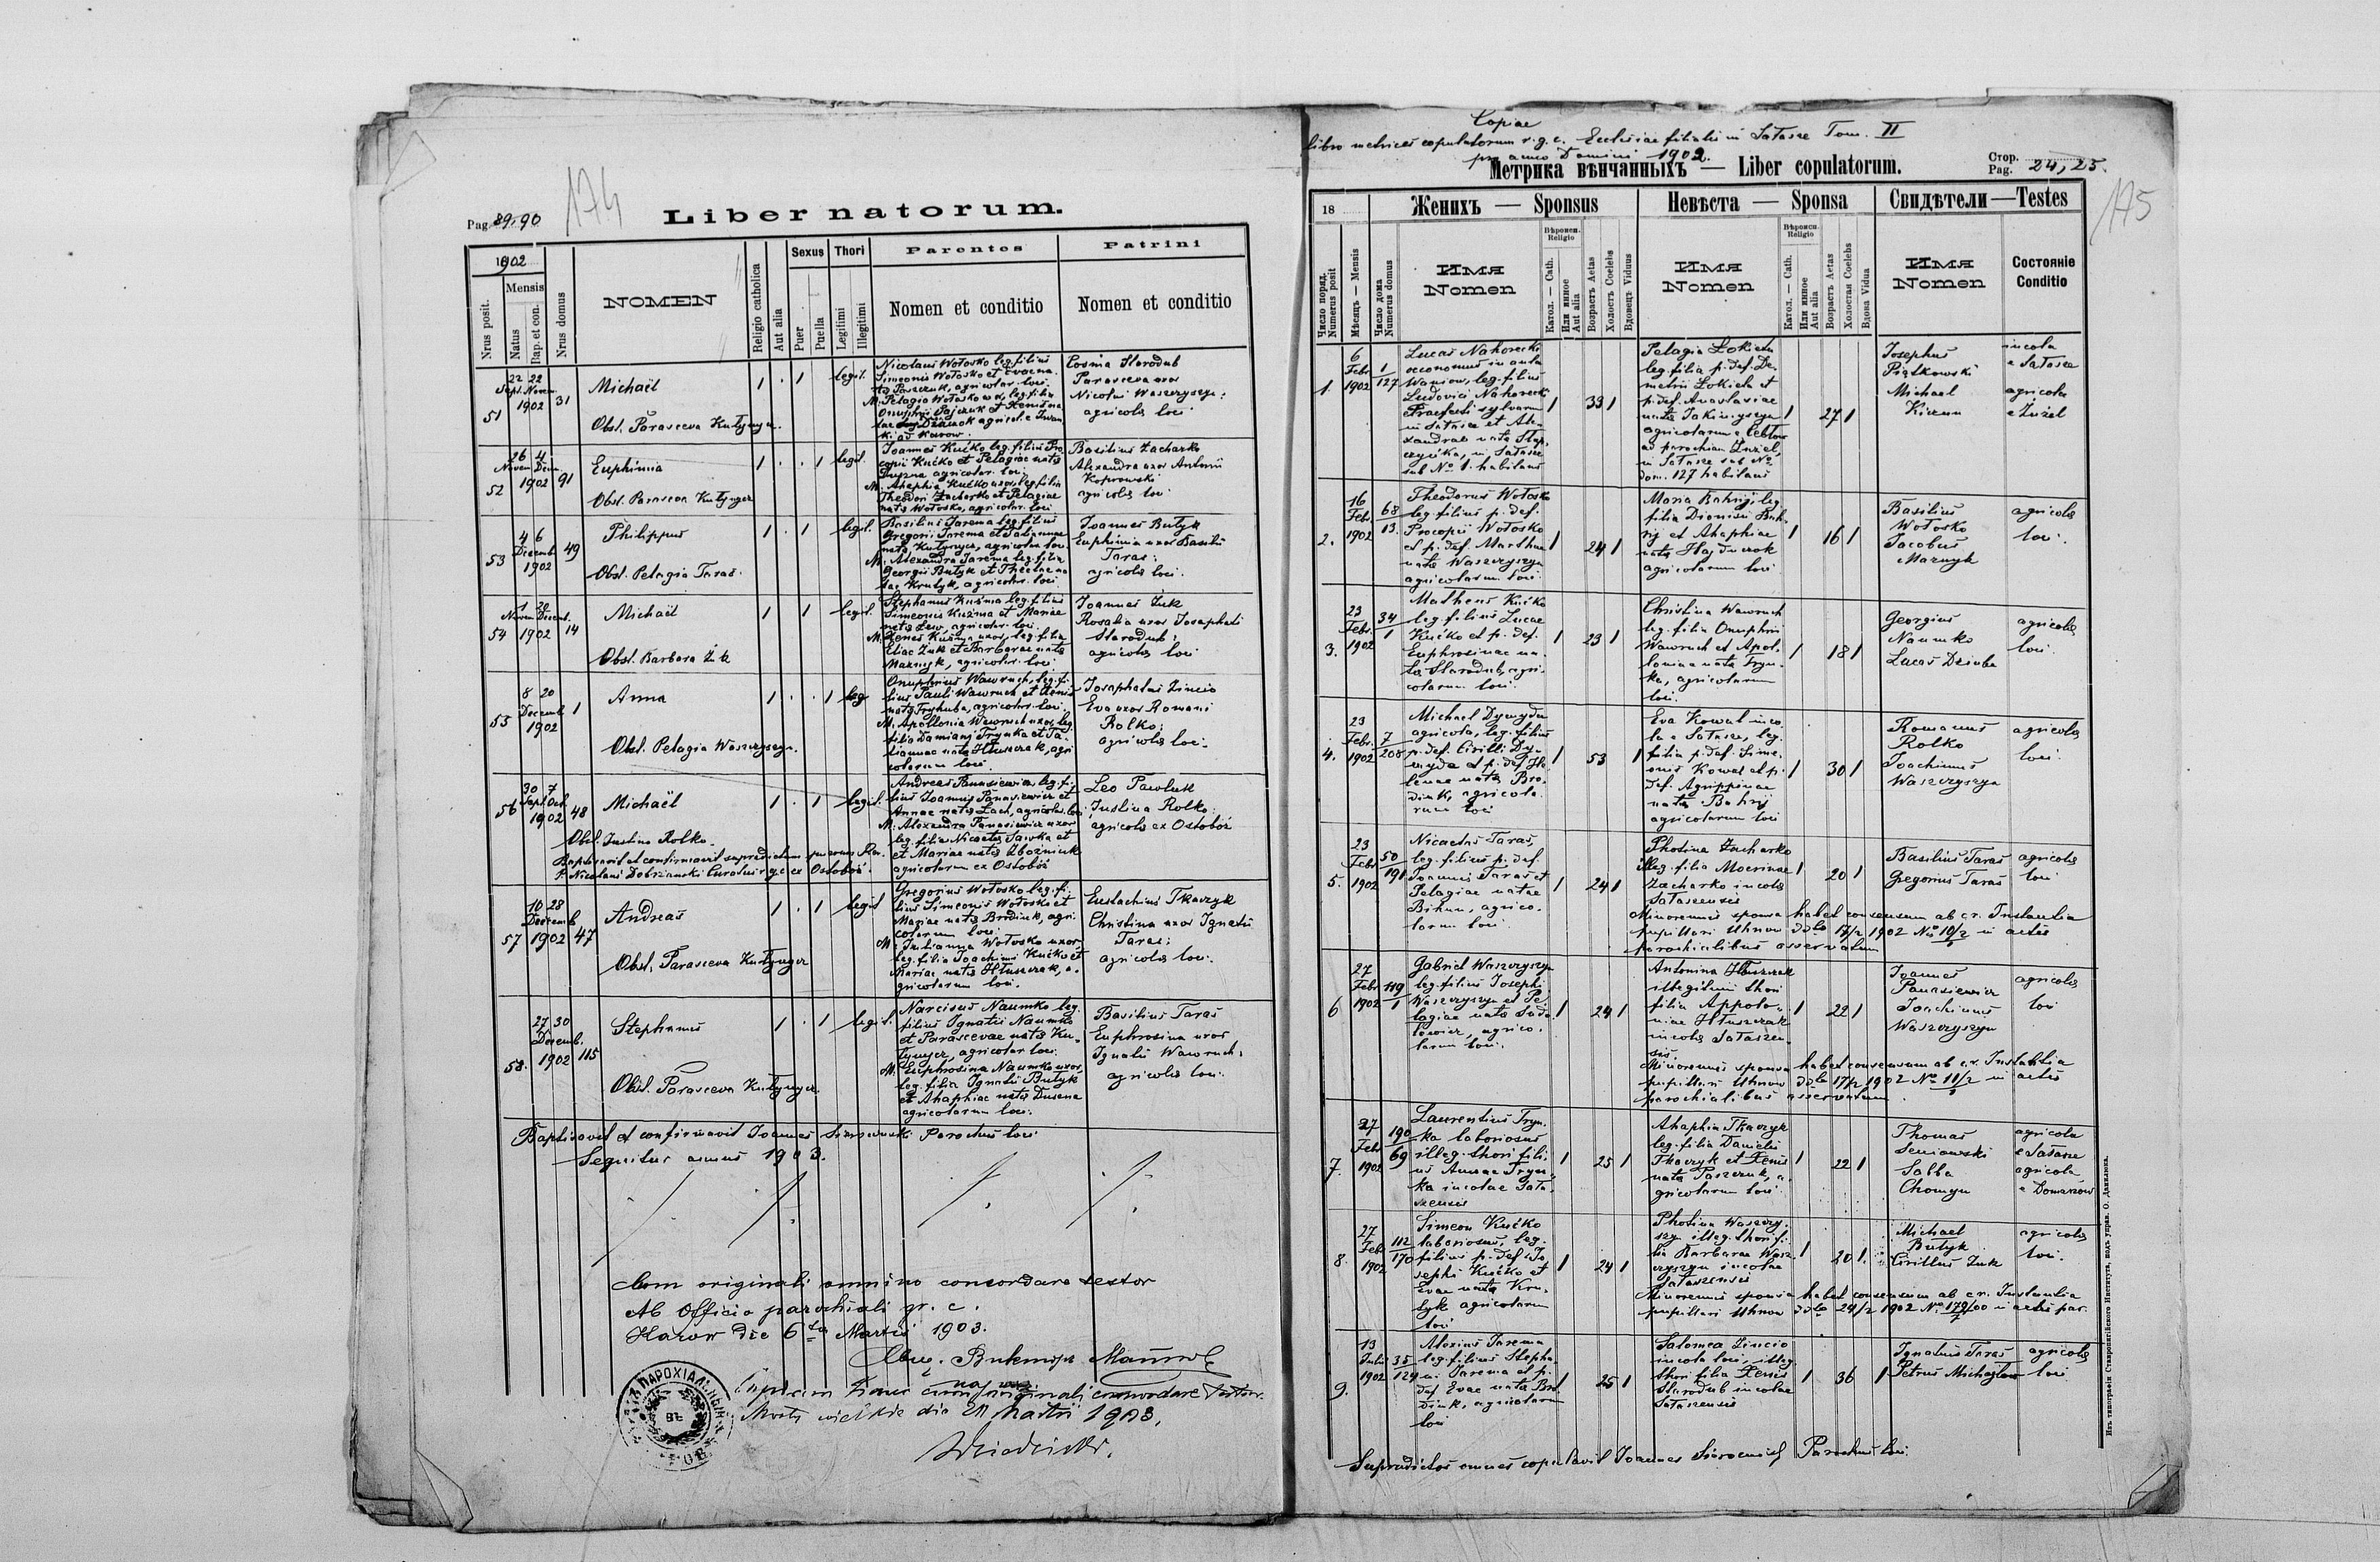 174
Pag. 89, 90
Liber natorum.
1902
Nrus posit.
Mensis
Natus
Bap. et con.
Nrus domus
NOMEN
Religio catholica
Aut alia
Sexus
Puer
Puella
Thori
Legitimi
Illegitimi
Parentes
Nomen et conditio
Patrini
Nomen et conditio
51
22 22
Sept. Novem
1902
31
Michaël
1 . 1
legit.
Obst. Parasceva Kułynycz.
Nicolaus Wołosko leg. filius
Simeonis Wołosko et Evae na
tae Paszczuk, agricolar. loci.
M. Pelagia Wołosko uxor, leg. filia
Onuphrii Pajczuk et Xeniae na
Cosma Starodub
Parasceva uxor
Nicolai Waszczyszyn:
agricolae loci
52
26 4
Novem Decem.
1902
91
Euphimia
1 . . 1
legit.
Obst. Parasceva Kułynycz
Joannes Kućko leg. filius Pro
copii Kućko et Pelagiae nata
Duszna agricolar. loci.
M. Ahaphia Kućko uxor, leg. filia
Theodori Zacharko et Pelagiae
nata Wołosko, agricolar. loci
Basilius Zacharko
Alexandra uxor Antonii
Koprowski
agricolae loci
53
4 6
Decemb
1902
49
Philippus
1 . 1
legit.
Obst. Pelagia Taras.
Basilius Jarema leg. filius
Gregorii Jarema et Tatiannae
nata Kułynycz, agricolar. loci.
M. Alexandra Jarema leg. filia
Georgii Butyk et Theclae na
tae Krutyk, agricolar. loci
Joannes Butyk
Euphimia uxor Basilii
Taras:
agricolae loci.
54
1 20
Novem Decemb.
1902
14
Michaël
1 1
legit.
Obst. Barbara Żuk
Stephanus Kuśma leg. filius
Simeonis Kuźma et Mariae
nata Lew, agricolar. loci.
M. Xenia Kuśma uxor, leg. filia
Eliae Żuk et Barbarae nata
Maznyk, agricolar. loci
Joannes Żuk
Rosalia uxor Josaphati
Starodub:
agricolae loci
55
8 20
Decemb
1902
1
Anna
1 . . 1
leg
Obst. Pelagia Waszczyszyn.
Onuphrius Wawruch, leg. fi
lius Pauli Wawruch et Xenia
nata Tryhuba, agricolar. loci.
M. Apollonia Wawruch uxor, leg
filia Damiani Trynka et Ta
tiannae nata Hłuszczak, agri
colarum loci.
Josaphatus Zincio
Eva uxor Romani
Rolko:
agricolae loci.
56
30 7
Sept. Oct.
1902
48
Michaël
1 . 1
legit.
Obst. Justina Rolko.
Baptisavit et confirmavit supradictum puerum Rev.
P. Nicolaus Dobrzanski Curatus r. g. c. ex Ostobóż.
Andreas Panasiewicz, leg. fi.
lius Joannis Panasiewicz et
Annae nata Lach, agricolar. loci
M. Alexandra Panasiewicz uxor
leg. filia Nicetae Sawka et
et Mariae nata Zbożniuk
agricolarum ex Ostobóż
Leo Pawluk
Justina Rolko:
agricolae ex Ostobóż
57
10 28
Decemb
1902
47
Andreas
1 . 1
legit
Obst. Parasceva Kułynycz
Gregorius Wołosko leg. fi.
lius Simeonis Wołosko et
Mariae nata Brodiuk, agri.
colarum loci.
M. Julianna Wołosko uxor,
leg. filia Joachimi Kućko et
Mariae nata Hłuszczak, a.
gricolarum loci.
Eustachius Tkaczyk
Christina uxor Ignatii
Taras:
agricolae loci.
58.
27 30
Decemb.
1902
115
Stephanus
1 . 1
legit.
Obst. Parasceva Kułynycz
Narcisus Naumko leg.
filius Ignatii Naumko
et Parascevae nata Ku.
łynycz, agricolar loci.
M. Euphrosina Naumko uxor,
leg. filia Ignatii Butyk
et Ahaphiae nata Dusena
agricolarum loci.
Basilius Taras
Euphrosina uxor
Ignatii Wawruch:
agricolae loci.
Baptisavit et confirmavit Joannes Parochus loci
Sequitur annus 1903.
Cum originali omnino concordare testor
Ab Officio parochiali gr. c.
die 6ta Martii 1903.
Copiam hanc cum originali concordare testor.
Mosty wielkie die 21 Martii 1903.
Copiae
libro metrices copulatorum r. g. c. Ecclesiae filialis in Sałasze Tom. II
pro anno Domini 1902.
Метрика вѣнчанныхъ — Liber copulatorum.
Стор.
Pag. 24, 25.
175
18
Число поряд.
Numerus posit
Мѣсяць — Mensis
Число дома
Numerus domus
Женихъ — Sponsus
Имя
Nomen
Вѣроисп.
Religio
Катол. — Cath.
Или инное
Aut alia
Возрастъ Aetas
Холостъ Coelebs
Вдовецъ Viduus
Невѣста — Sponsa
Имя
Nomen
Вѣроисп.
Religio
Катол. — Cath.
Или инное
Aut alia
Возрастъ Aetas
Холостая Coelebs
Вдова Vidua
Свидѣтели — Testes
Имя
Nomen
Состояніе
Conditio
1
6
Febr.
1902
1
127
Lucas Nahorecki
oeconomus in aula
Waniow, leg. filius
Ludovici Nahorecki
Praefecti sylvarum
in Sałasze et Ale
xandrae nata Step.
in Sałasze
sub No 1. habitans
1 33 1
Pelagia Łokieta
leg. filia p. def. De.
metrii Łokieta et
p. def. Anastasiae
nata Jakimyszyn
agricolarum e Cebłow
ad parochiam Żużel,
in Sałasze sub No
dom. 127 habitans
1 27 1
Josephus
Piątkowski
Michael
incola
e Sałasze
agricola
e Żużel
2.
16
Febr.
1902
68
13.
Theodorus Wołosko
leg. filius p. def.
Procopii Wołosko
et p. def. Marthae
nata Waszczyszyn
agricolarum loci
1 24 1
Maria Bahrij, leg.
filia Dionisii Bah.
rij et Ahaphiae
nata Hajduczok
agricolarum loci
1 16 1
Basilius
Wołosko
Jacobus
Maznyk
agricolae
loci.
3.
23
Febr.
1902
34
1
Matheus Kućko
leg. filius Lucae
Kućko et p. def.
Euphrosinae na.
ta Starodub, agri.
colarum loci.
1 23 1
Christina Wawruch
leg. filia Onuphrii
Wawruch et Apol.
loniae nata Tryn.
ka, agricolarum
loci.
1 18 1
Georgius
Naumko
Lucas Dziuba
agricolae
loci.
4.
23
Febr.
1902
7
208
Michael Dywyda
agricola, leg. filius
p. def. Cirilli Dy.
wyda et p. def. He
lenae nata Bro.
diuk, agricola.
rum loci
1 53 1
Eva Kowal inco.
la e Sałasze, leg.
filia p. def. Sime.
onis Kowal et p.
def. Agrippinae
nata Bahrij
agricolarum loci
1 30 1
Romanus
Rolko
Joachimus
Waszczyszyn
agricolae
loci.
5.
23
Febr.
1902
50
191
Nicaetas Taras,
leg. filius p. def.
Joannis Taras et
Pelagiae natae
Bihun, agrico.
larum loci
1 24 1
Photina Zacharko
illeg. filia Macrinae
Zacharko incolae
Sałaszensis
1 20 1
Basilius Taras
Gregorius Taras
agricolae
loci
Minorennis sponsa habet consensum ab c. r. Instantia
pupillari Uhnow ddto 17/2 1902 No 10/2 in actis
parochialibus asservatum
6
27
Febr
1902
119
1
Gabriel Waszczyszyn
leg. filius Josephi
Waszczyszyn et Pe
lagiae nata Sido
rowicz, agrico.
larum loci.
1 24 1
Antonina Hłuszczak
illegitimi thori
filia Appolo.
niae Hłuszczak
incolae Sałaszen
sis.
1 22 1
Joannes
Panasiewicz
Joachimus
Waszczyszyn
agricolae
loci
Minorennis sponsa habet consensum ab c. r. Instantia
pupillari Uhnow ddto 17/2 1902 No 11/2 in actis
parochialibus asservatum.
7.
27
Febr
1902
190
69
Laurentius Tryn.
ka laboriosus
illeg. thori fili.
us Annae Tryn.
ka incolae Sała.
szensis
1 25 1
Ahaphia Tkaczyk
leg. filia Danielis
Tkaczyk et Xenia
nata Paszczuk, a.
gricolarum loci
1 22 1
Thomas
Seniawski
Sabba
Chomyn
agricola
e Sałasze
agricola
e Domaszów
8.
27
Febr
1902
112
170
Simeon Kućko
laboriosus, leg.
filius p. def. Jo
sephi Kućko et
Evae nata Kru.
tyk agricolarum
loci
1 24 1
Photina Waszczy.
szyn illeg. thori f.
lia Barbarae Wasz
czyszyn incolae
Sałaszensis
1 20 1.
Michael
Butyk
Cirillus Żuk
agricolae
loci.
Minorennis sponsa habet consensum ab c. r. Instantia
pupillari Uhnow ddto 24/2 1902 No 179/00 in actis par.
9.
13
Julii
1902
35
124
Alexius Jarema
leg. filius Stepha.
ni Jarema et p.
def. Evae nata Bro
diuk, agricolarum
loci
1 25 1
Salomea Zincio
incola loci, illeg.
thori filia Xenia
Starodub incolae
Sałaszensis
1 36 1
Ignatius Taras
Petrus Michajlow
agricolae
loci
Supradictos omnes copulavit Joannes Parochus loci
Изъ типографіи Ставропигійского Института, подъ управ. О. Данилюка.